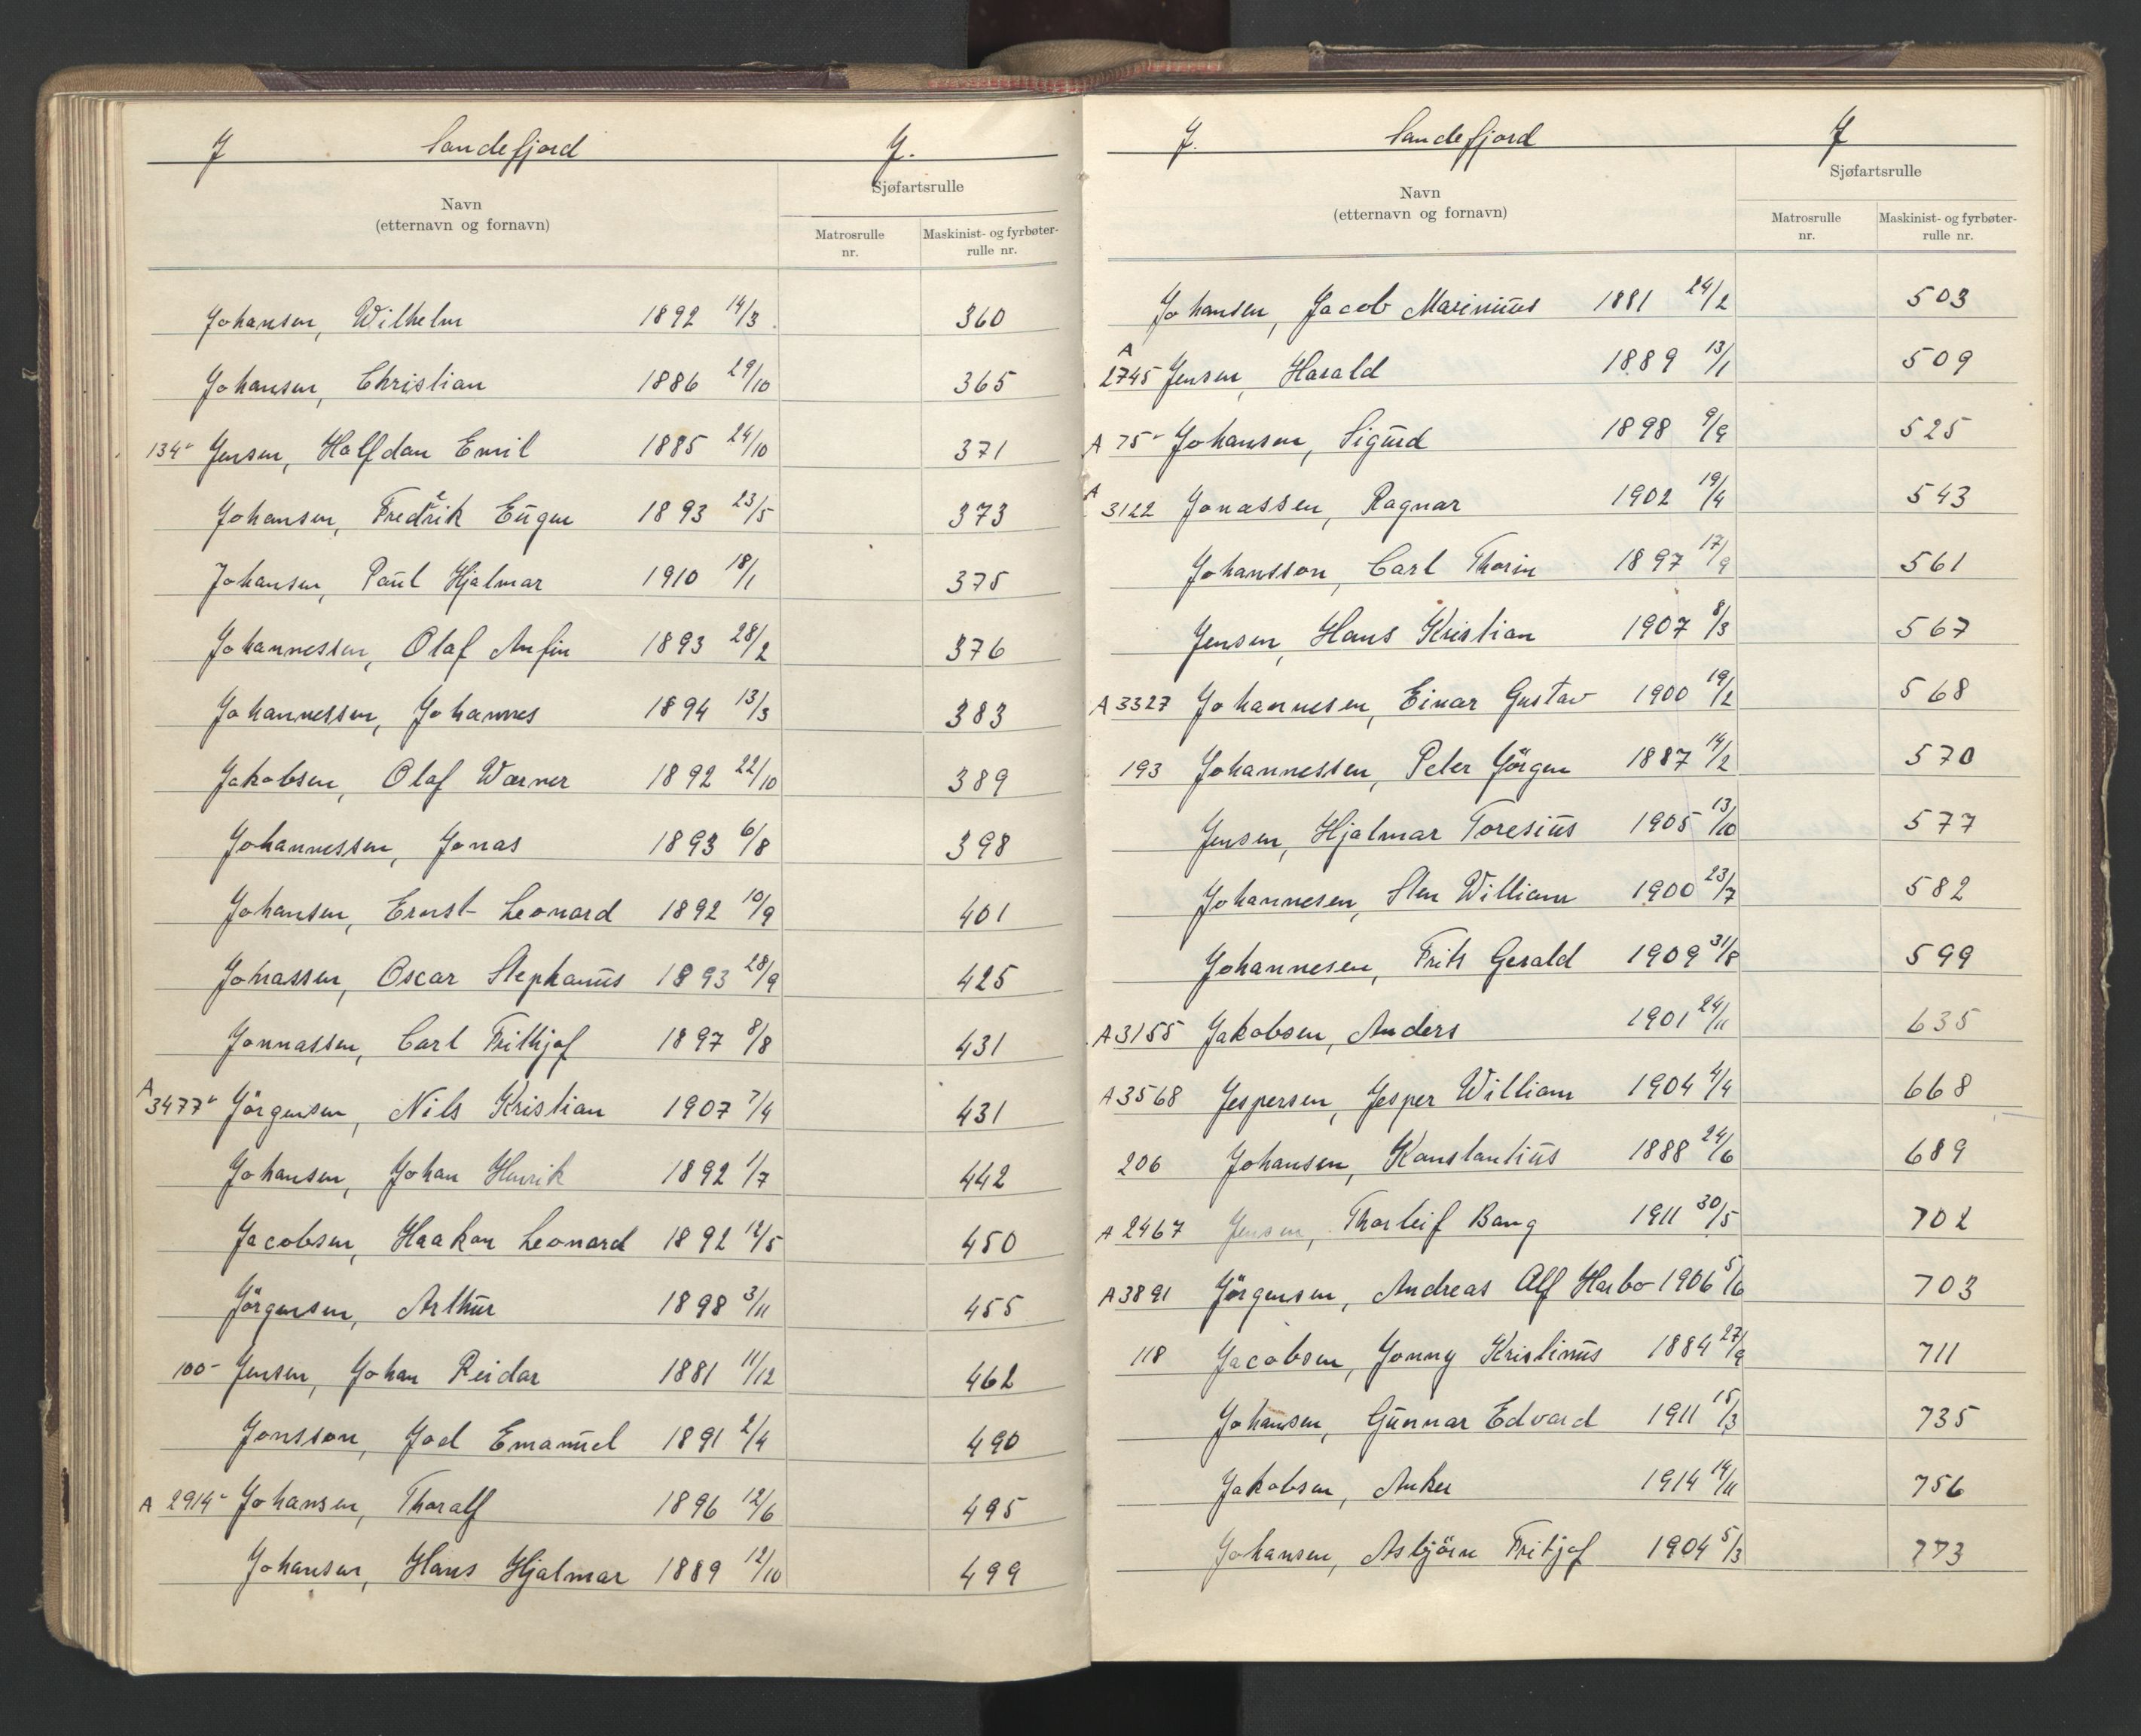 J Sandefjord J.
Sjøfartsrulle
Navn
(etternavn og fornavn)
Matrosrulle nr.
Maskinist- og fyrbøter-rulle nr.
Johansen, Wilhelm 1892 14/3 360
Johansen, Christian 1886 29/10 365
134 Jensen, Halfdan Emil 1885 24/10 371
Johansen, Fredrik Eugen 1893 23/5 373
Johansen, Paul Hjalmar 1910 18/1 375
Johannessen, Olaf Anfin 1893 28/2 376
Johannessen, Johannes 1894 13/3 383
Jakobsen, Olaf Warner 1892 22/10 389
Johannessen, Jonas 1893 6/8 398
Johansen, Ernst Leonard 1892 10/9 401
Johnassen, Oscar Stephanus 1893 28/9 425
Jonnassen, Carl Frithjof 1897 8/8 431
A 3477 Jörgensen, Nils Kristian 1907 7/4 431
Johansen, Johan Henrik 1892 1/7 442
Jacobsen, Haakon Leonard 1892 12/5 450
Jörgensen, Arthur 1898 3/11 455
100 Jensen, Johan Reidar 1881 11/12 462
Jonsson, Joel Emanuel 1891 2/4 490
A 2914 Johansen, Thoralf 1896 12/6 495
Johansen, Hans Hjalmar 1889 12/10 499
J. Sandefjord J
Sjøfartsrulle
Navn
(etternavn og fornavn)
Matrosrulle nr.
Maskinist- og fyrbøter-rulle nr.
Johansen, Jacob Marinius 1881 24/2 503
A 2745 Jensen, Harald 1889 13/1 509
A 75 Johansen, Sigurd 1898 9/9 525
A 3122 Jonassen, Ragnar 1902 19/4 543
Johansson, Carl Thorin 1897 17/9 561
Jensen, Hans Kristian 1907 8/3 567
A 3327 Johannesen, Einar Gustav 1900 19/2 568
193 Johannessen, Peter Jörgen 1887 14/2 570
Jensen, Hjalmar Toresius 1905 13/10 577
Johannesen, Sten William 1900 23/7 582
Johannesen, Frits Gerald 1909 31/8 599
A 3155 Jakobsen, Anders 1901 24/11 635
A 3568 Jespersen, Jesper William 1904 4/4 668
206 Johansen, Konstantius 1888 24/6 689
A 2467 Jensen, Thorleif Bang 1911 30/5 702
A 3891 Jörgensen, Andreas Alf Harbo 1906 5/6 703
118 Jacobsen, Jonny Kristinus 1884 27/9 711
Johansen, Gunnar Edvard 1911 15/3 735
Jakobsen, Anker 1914 14/11 756
Johansen, Asbjörn Fritjof 1904 5/3 773